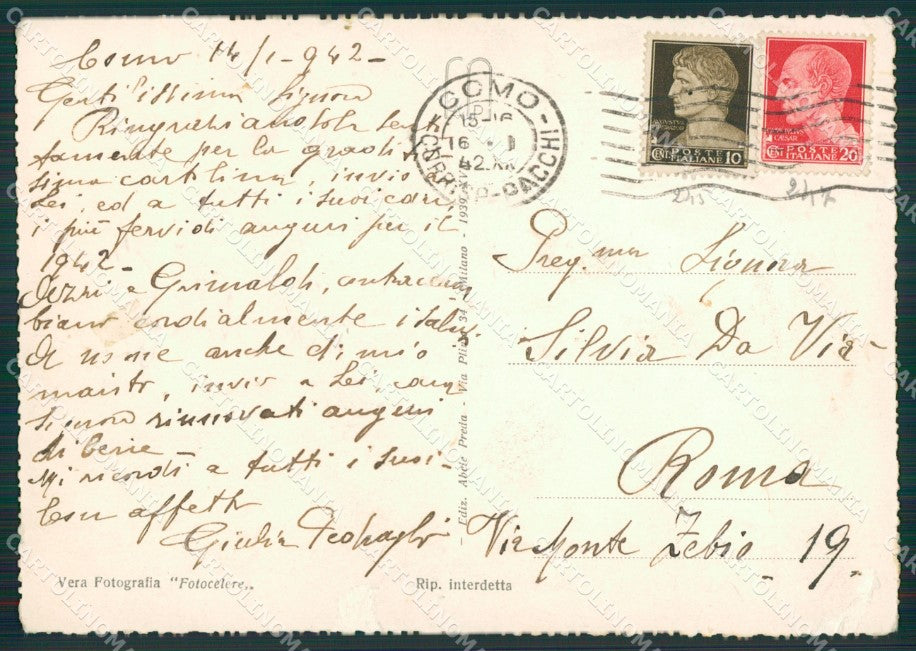 Como 14/1-942-
Gentilissima Signora
Ringraziandola sen
tamente per la gradi
ssima cartolina, invio a
Lei, ed a tutti i suoi cari
i più fervidi auguri per il
1942-
e Grimaldi, contraccam
biano cordialmente i saluti
A nome anche di mio
marito, invio a Lei, cara
Signora rinnovati auguri
di bene
Mi ricordi a tutti i suoi-
Con affetto
Giulia
Vera Fotografia "Fotocelere"
Rip. interdetta
Ediz. Abele Preda - Via Plinio, 34 - Milano - 1939
COMO
15-16
16 · I
42.XX
CORRISP.-PACCHI
POSTE
ITALIANE
CENT 10
CAESAR
POSTE
ITALIANE
CENT 20
245
247
Preg.ma Signora
Silvia Da Via
Roma
Via Monte Zebio - 19.
CARTOLINOMANIA